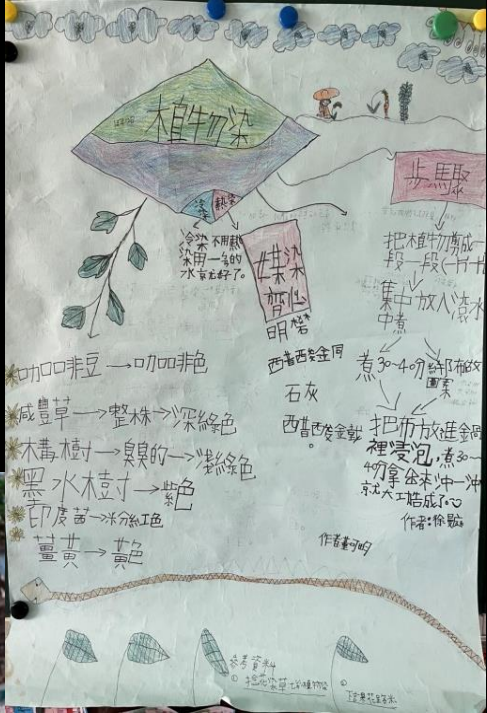 植物染
冷染
熱染
冷染不用熱
染用一般的
水就好了。
媒染
劑
明礬
醋酸銅
石灰
醋酸鐵
。
步驟
把植物剪成一
段一段(一片一片
集中放入滾水
中煮
煮30~40分鐘
把布放進鍋
裡浸泡,煮30~
40分拿出來沖一沖
就大工告成了
作者:徐
咖啡豆→咖啡色
咸豐草→整株→深綠色
構樹→臭臭的→淺綠色
黑水樹→紫色
印度茜→粉紅色
薑黃→黃色
作者:
參考資料